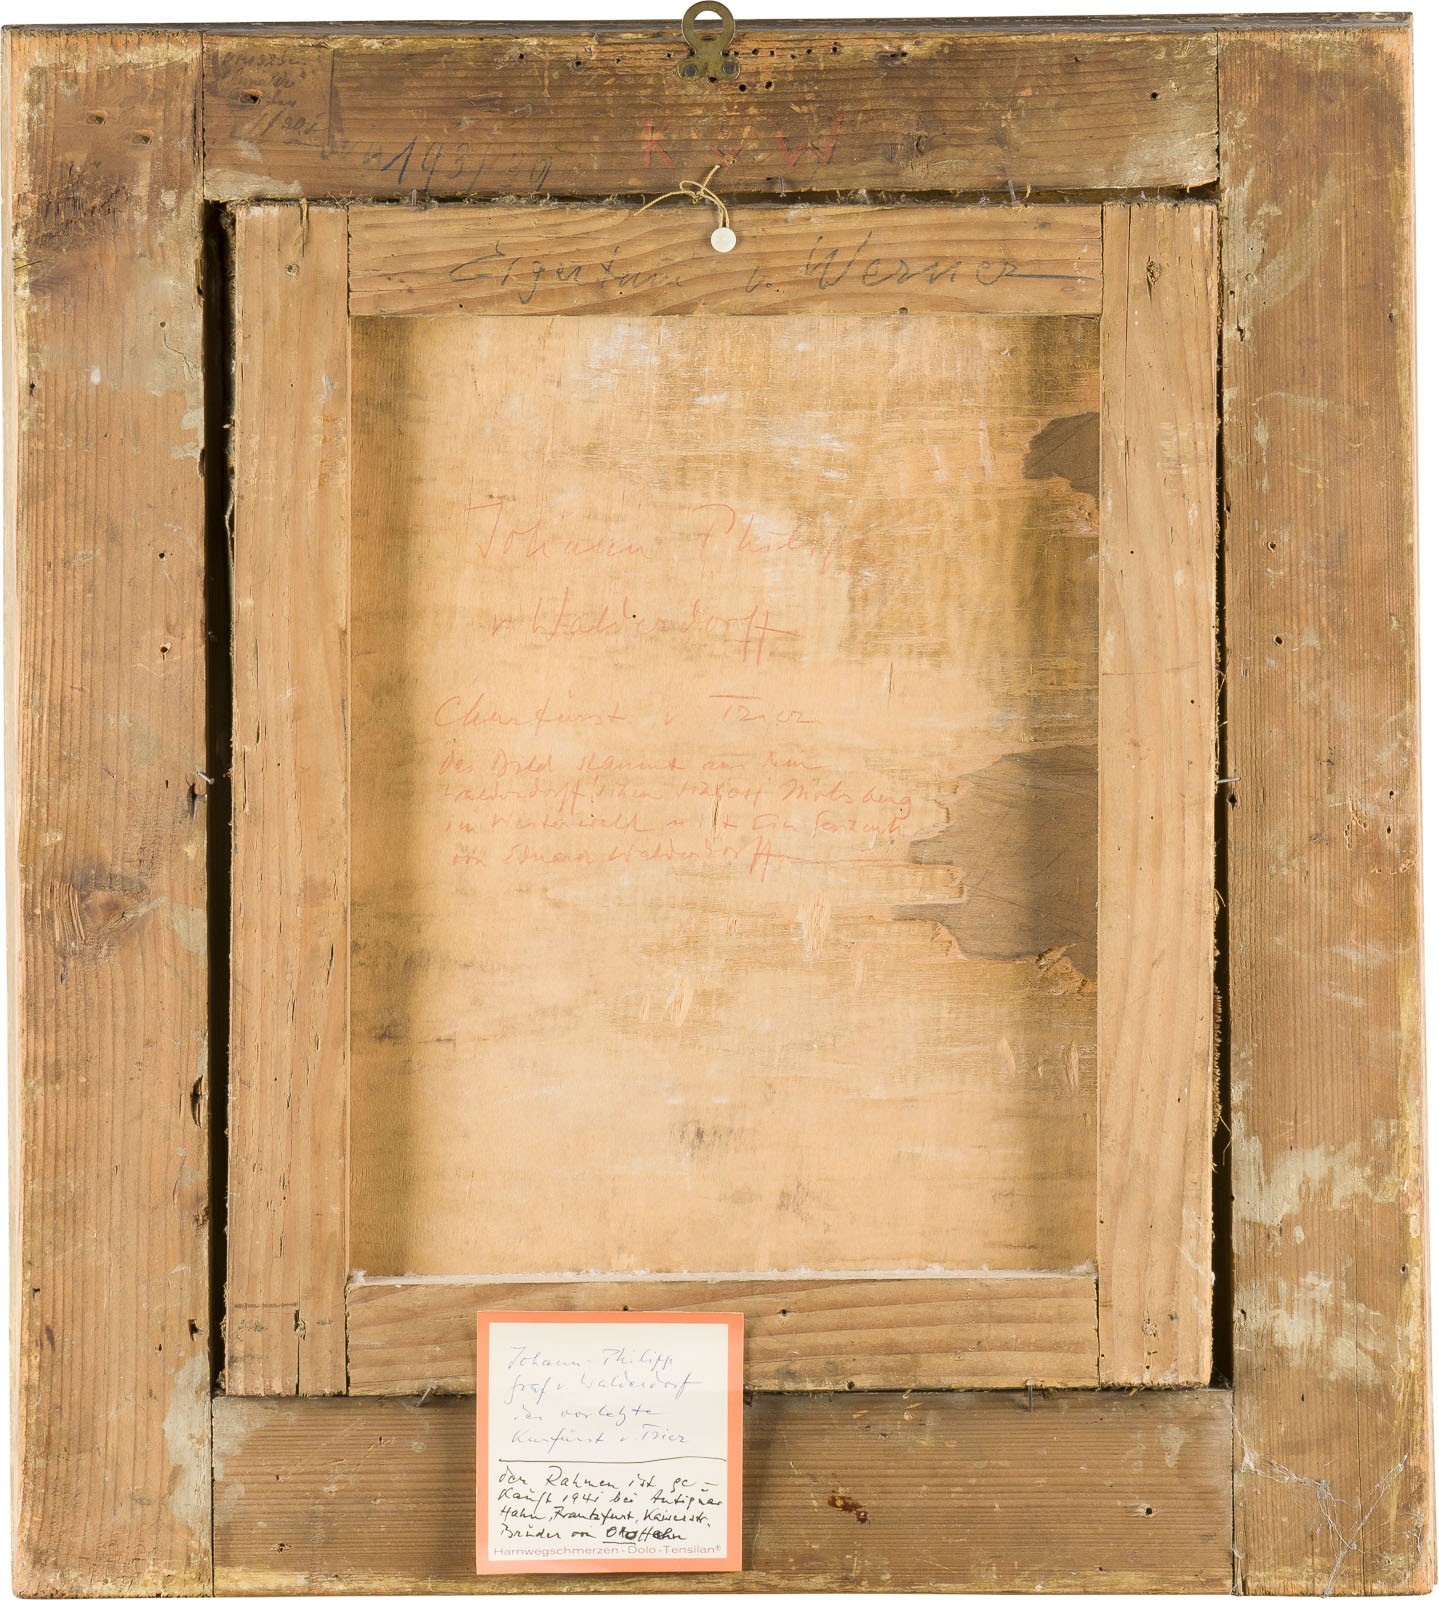 1931/39
K. v. W
Eigentum v. Werner
Johann Philipp
v. Walderdorff
Churfürst v. Trier
das Bild stammt aus dem
Walderdorff'schen Schloss Molsberg
im Westerwald u. ist ein Geschenk
von Eduard Walderdorff
Johann-Philipp
Graf v. Walderdorff
der vorletzte
Kurfürst v. Trier
der Rahmen ist ge-
kauft 1941 bei Antiquar
Hahn, Frankfurt, Kaiserstr.
Bruder von Otto Hahn
Harnwegschmerzen-Dolo-Tensilan®